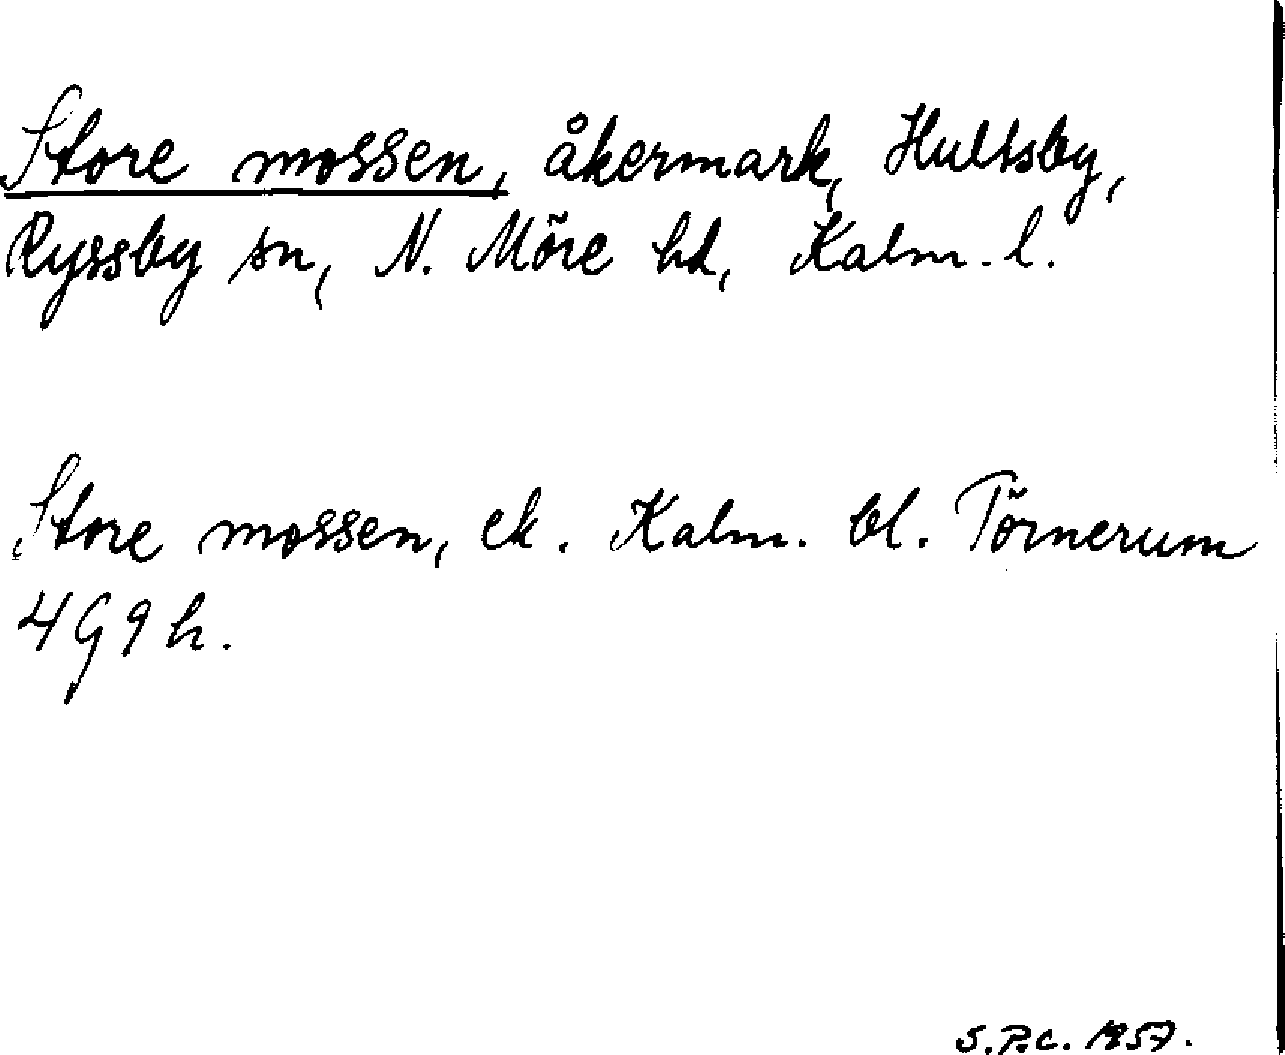 Store mossen, åkermark, Hultsby,
Ryssby sn, N. Möre hd, Kalm. l.
Store mossen, ek. Kalm. bl. Törnerum
4G9h.
S.P.C. 1957.